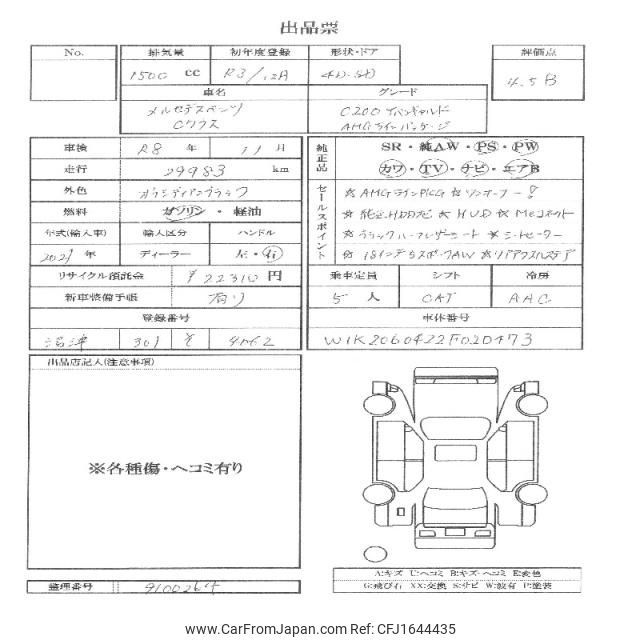 出品票
No. 排気量 初年度登録 形状・ドア 評価点
1500 cc R3/12A 4D・SD 4.5 B
車名 グレード
メルセデスベンツ C200 アバンギャルド
Cクラス AMGラインパッケージ
車検 R8 年 11 月
走行 29983 km
外色 オブシディアンブラック
燃料 ガソリン・軽油
年式(輸入車) 輸入区分 ハンドル
2021 年 ディーラー 左・右
リサイクル預託金 ¥22310 円
新車装備手帳 有り
登録番号
沼津 301 そ
純正品 SR・純AW・PS・PW
カワ・TV・ナビ・エアB
セールスポイント ☆AMGラインPKG ☆ワンオーナー!
☆純正HDDナビ ☆HUD ☆Meコネクト
☆ブラックハーフレザーシート ☆シートヒーター
☆18インチAMGスポークAW ☆リアアクスルステア
乗車定員 シフト 冷房
5 人 CAT AAC
車体番号
W1K2060422F020473
出品店記入(注意事項)
※各種傷・ヘコミ有り
A:キズ U:ヘコミ B:キズ・ヘコミ E:変色
G:飛び石 XX:交換 S:サビ W:波有 P:塗装
整理番号
www.CarFromJapan.com CFJ1644435